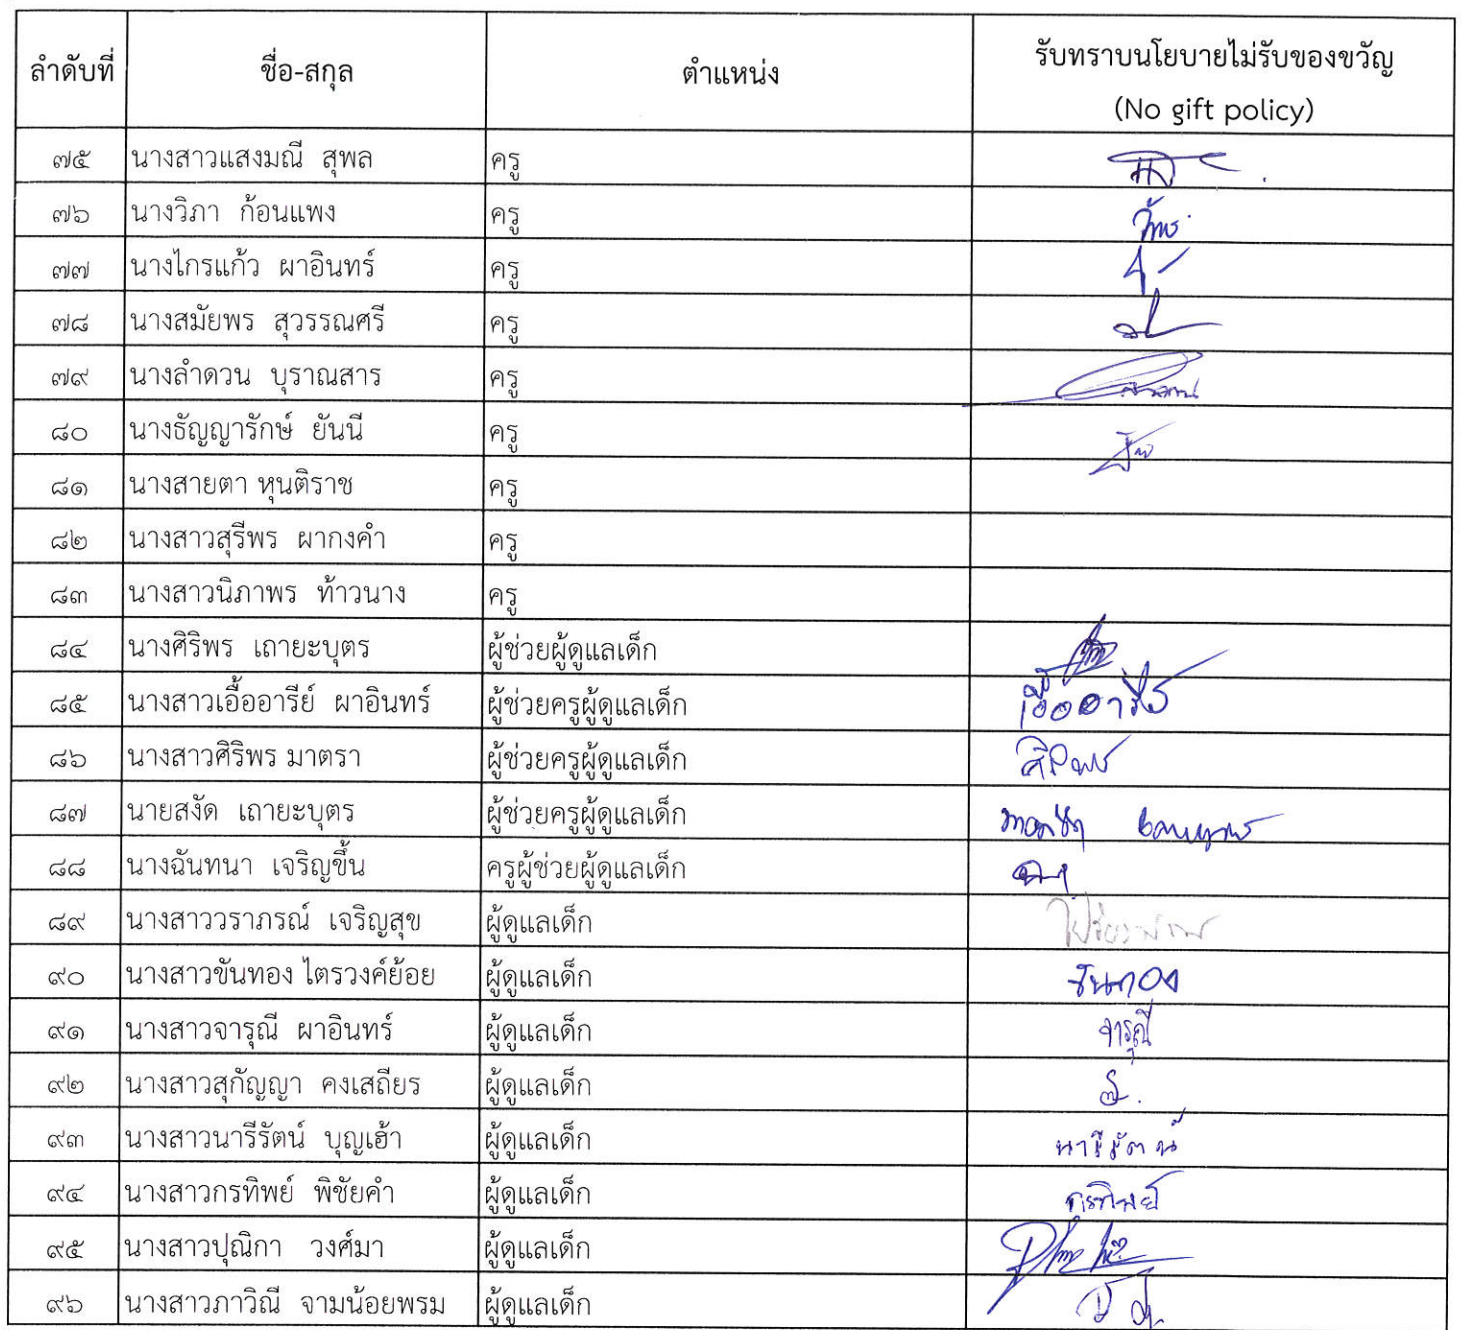 ลำดับที่ ชื่อ-สกุล ตำแหน่ง รับทราบนโยบายไม่รับของขวัญ
(No gift policy)
๗๕ นางสาวแสงมณี สุพล ครู
๗๖ นางวิภา ก้อนแพง ครู
๗๗ นางไกรแก้ว ผาอินทร์ ครู
๗๘ นางสมัยพร สุวรรณศรี ครู
๗๙ นางลำดวน บุราณสาร ครู
๘๐ นางธัญญารักษ์ ยันนี ครู
๘๑ นางสายตา หุนติราช ครู
๘๒ นางสาวสุรีพร ผากงคำ ครู
๘๓ นางสาวนิภาพร ท้าวนาง ครู
๘๔ นางศิริพร เถายะบุตร ผู้ช่วยผู้ดูแลเด็ก
๘๕ นางสาวเอื้ออารีย์ ผาอินทร์ ผู้ช่วยครูผู้ดูแลเด็ก เอื้ออารีย์
๘๖ นางสาวศิริพร มาตรา ผู้ช่วยครูผู้ดูแลเด็ก ศิริพร
๘๗ นายสงัด เถายะบุตร ผู้ช่วยครูผู้ดูแลเด็ก
๘๘ นางฉันทนา เจริญขึ้น ครูผู้ช่วยผู้ดูแลเด็ก
๘๙ นางสาววราภรณ์ เจริญสุข ผู้ดูแลเด็ก
๙๐ นางสาวขันทอง ไตรวงค์ย้อย ผู้ดูแลเด็ก ขันทอง
๙๑ นางสาวจารุณี ผาอินทร์ ผู้ดูแลเด็ก จารุณี
๙๒ นางสาวสุกัญญา คงเสถียร ผู้ดูแลเด็ก
๙๓ นางสาวนารีรัตน์ บุญเฮ้า ผู้ดูแลเด็ก นารีรัตน์
๙๔ นางสาวกรทิพย์ พิชัยคำ ผู้ดูแลเด็ก กรทิพย์
๙๕ นางสาวปุณิกา วงศ์มา ผู้ดูแลเด็ก
๙๖ นางสาวภาวิณี จามน้อยพรม ผู้ดูแลเด็ก